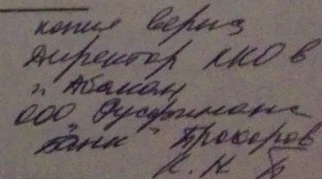 копия верна
Директор ККО в
г. Абакан
ООО "Русфинанс
Банк" Прохоров
К. Н.